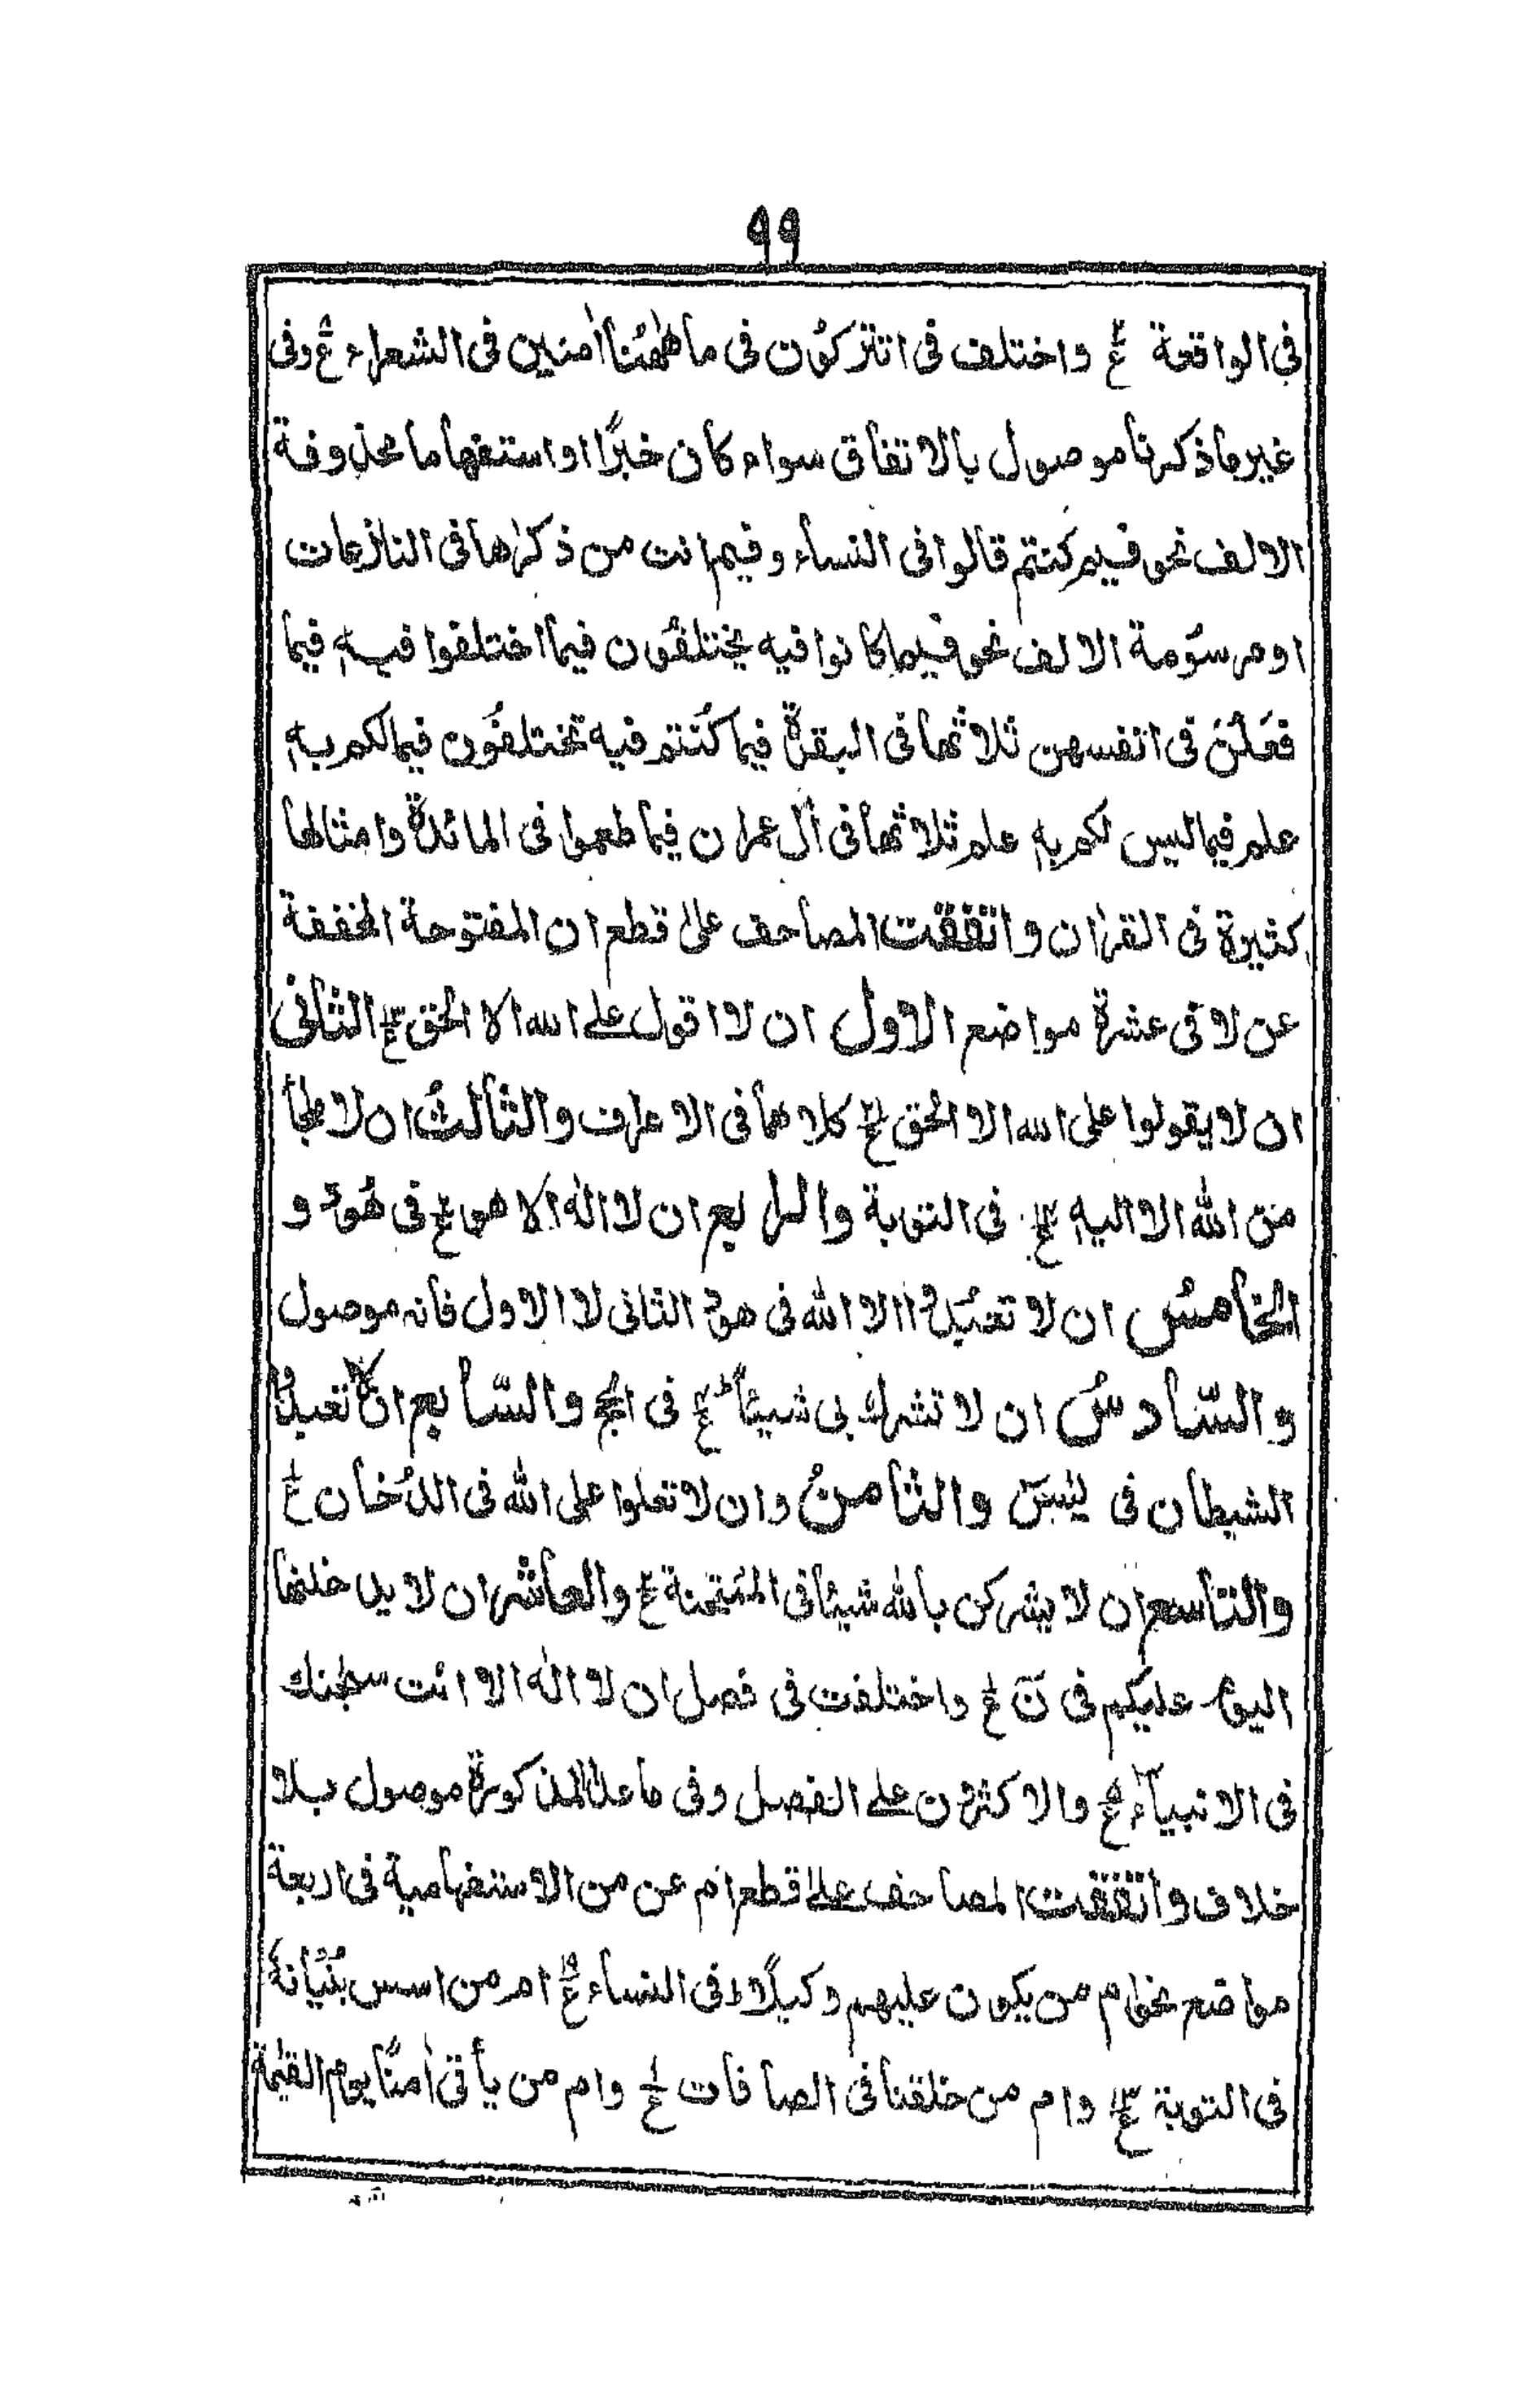 ٩٩
فى الواقعة ع واختلف فى اتتركون فى ما هٰهُنا اٰمنين فى الشعراء ع وفى
غير ما ذكرنا موصول بالاتفاق سواء كان خبرًا او استفهاما محذوفة
الالف نحو فيم كنتم قالوا فى النساء وفيم انت من ذكرٰها فى النازعات
او مرسومة الالف نحو فيما كانوا فيه يختلفون فيما اختلفوا فيه فيما
فعلن فى انفسهن ثلاثها فى البقرة فيما كنتم فيه تختلفون فيما لكم به
علم فيما ليس لكم به علم ثلاثها فى اٰل عمران فيما طعموا فى المائدة وامثالها
كثيرة فى القراٰن واتفقت المصاحف على قطع ان المفتوحة المخففة
عن لا فى عشرة مواضع الاول ان لا اقول على الله الا الحق ع الثانى
ان لا يقولوا على الله الا الحق ع كلاهما فى الاعراف والثالث ان لا ملجأ
من الله الا اليه ع فى التوبة والرابع ان لا اله الا هو ع فى هود و
الخامس ان لا تعبدوا الا الله فى هود الثانى لا الاول فانه موصول
والسّادس ان لا تشرك بى شيئاً ع فى الحج والسّابع ان لا تعبدوا
الشيطان فى يٰسٓ والثامن وان لا تعلوا على الله فى الدخان ع
والتاسع ان لا يشركن بالله شيئا فى الممتحنة ع والعاشر ان لا يدخلنها
اليوم عليكم فى نٓ ع واختلفت فى فصل ان لا اله الا انت سبحٰنك
فى الانبيآء ع والاكثرون على الفصل وفى ما عدا المذكورة موصول بلا
خلاف واتفقت المصاحف على قطع ام عن من الاستفهامية فى اربعة
مواضع نحو ام من يكون عليهم وكيلًا فى النساء ع ام من اسس بنيانه
فى التوبة ع وام من خلقنا فى الصافات ع وام من يأتى اٰمنًا يوم القيٰمة